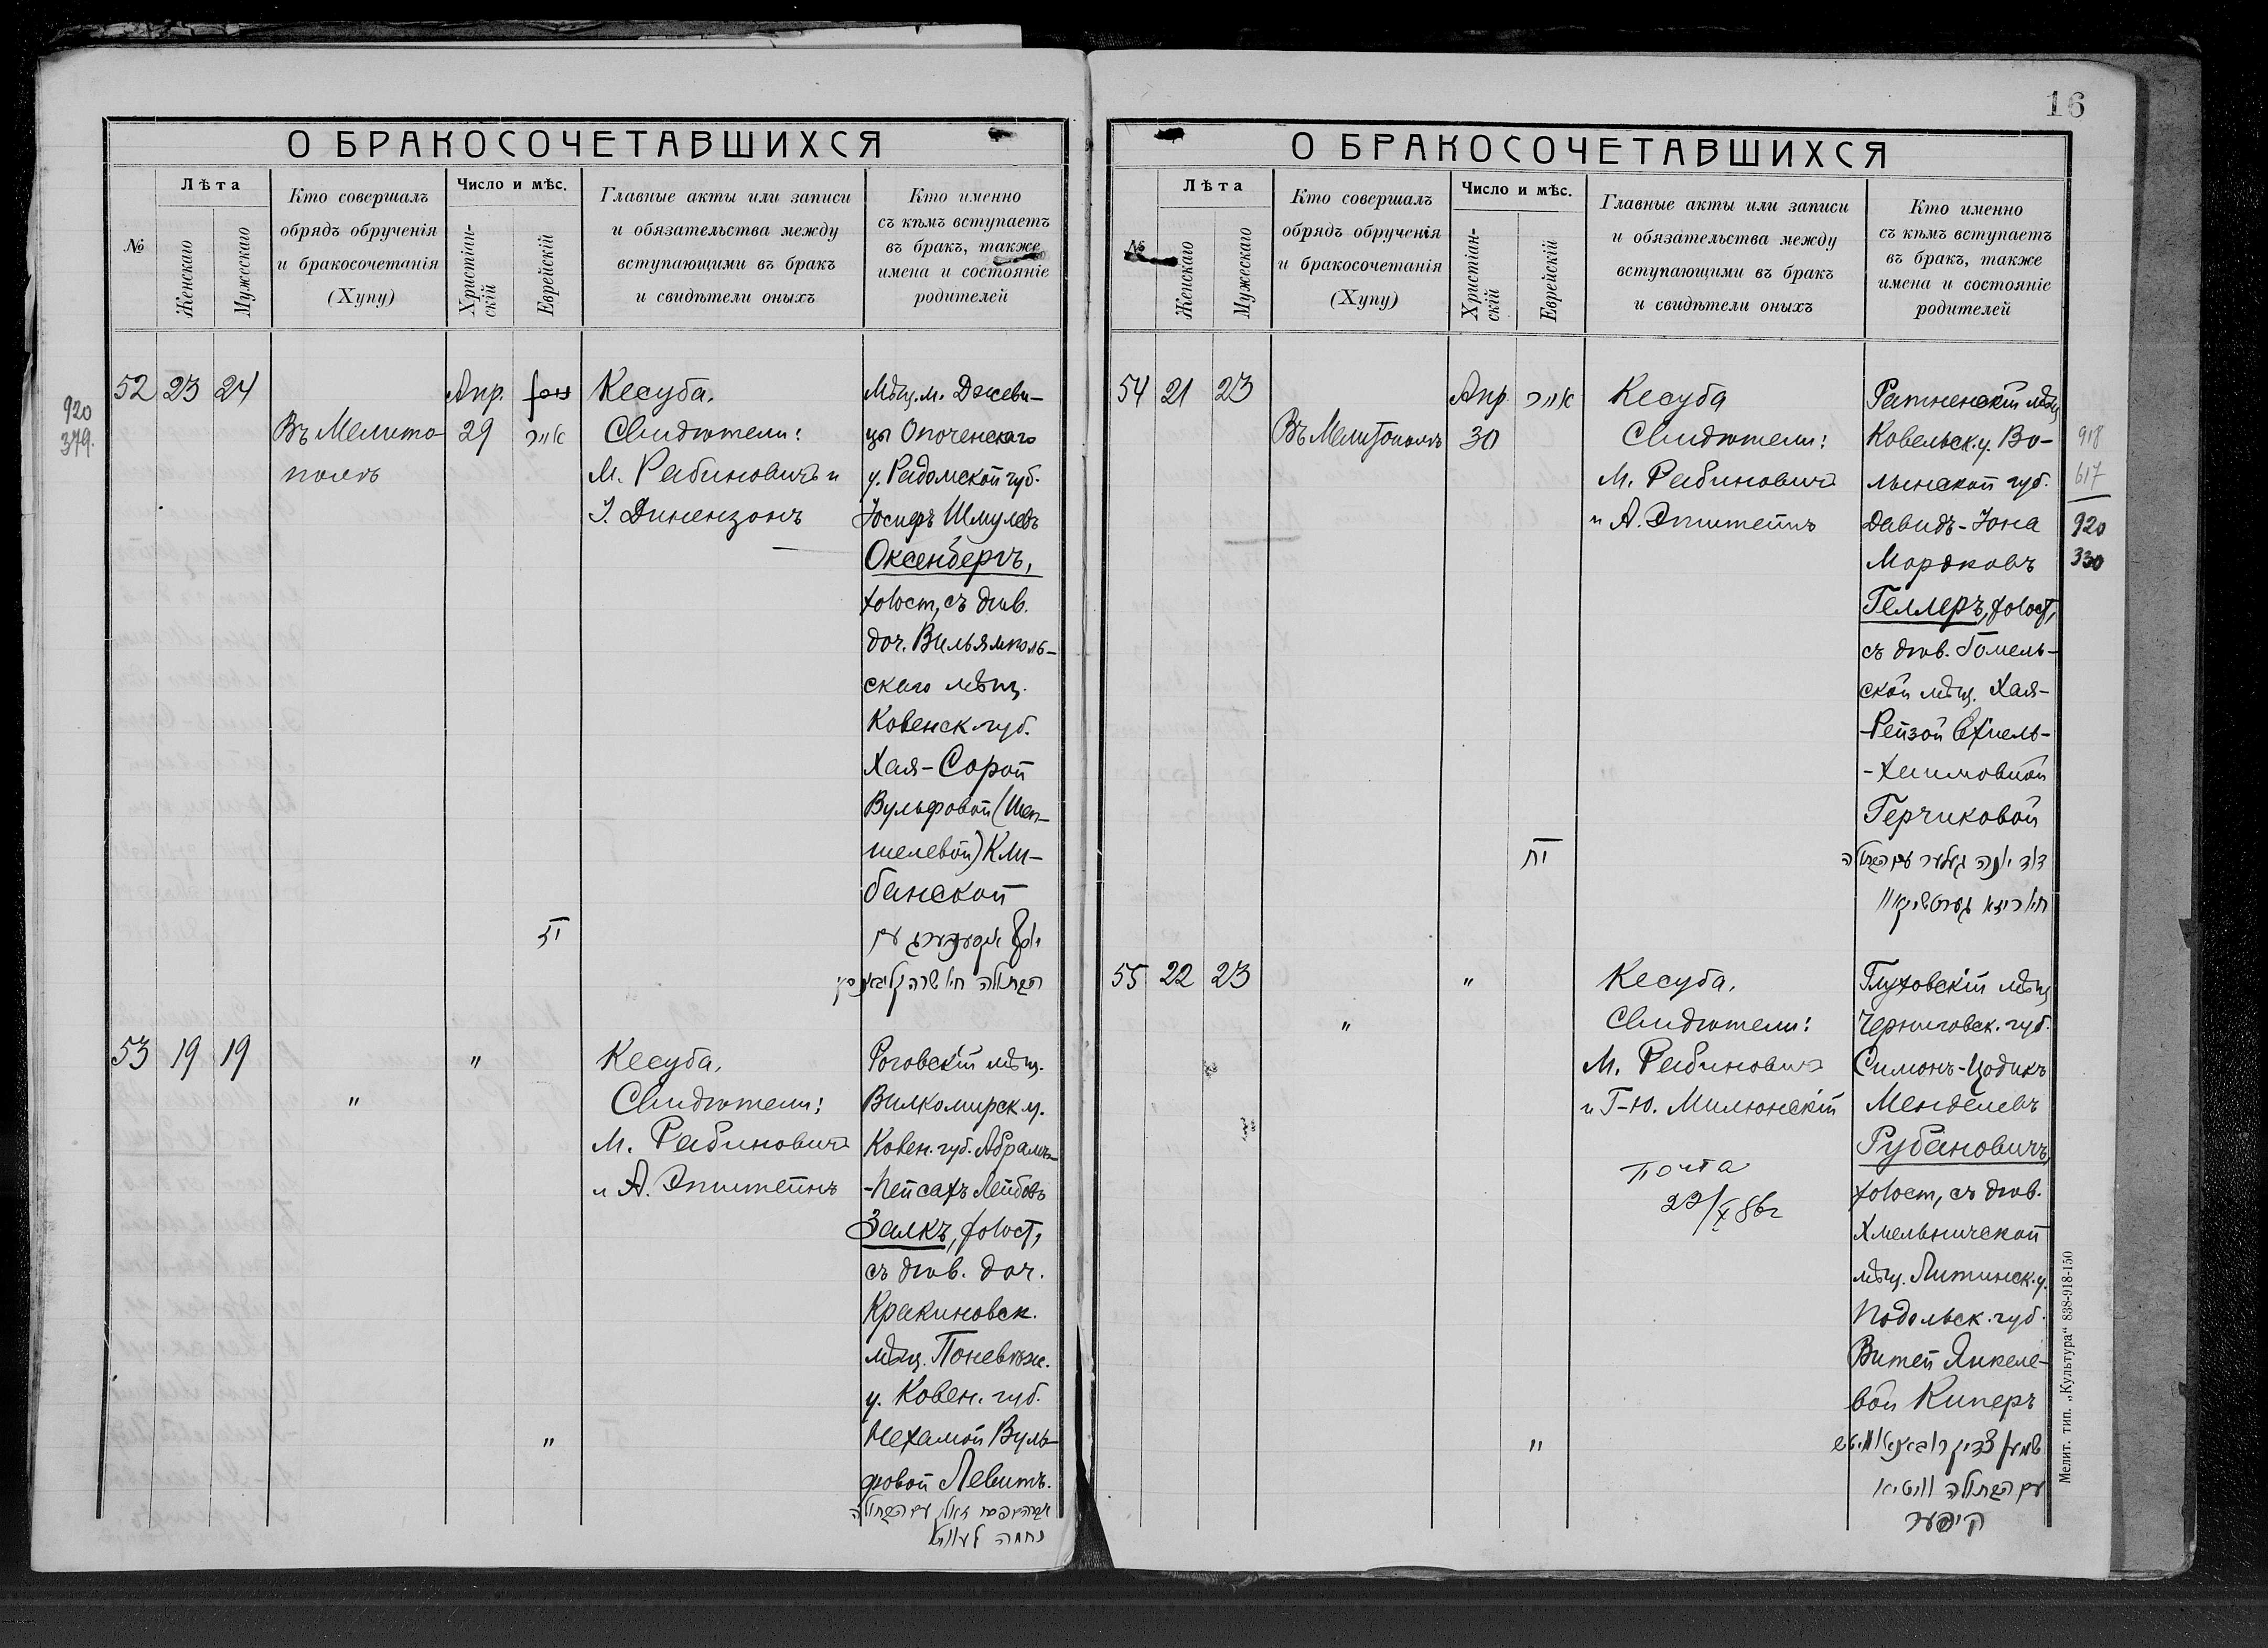 16
О БРАКОСОЧЕТАВШИХСЯ
№
Лѣта
Женскаго
Мужескаго
Кто совершалъ
обрядъ обрученія
и бракосочетанія
(Хупу)
Число и мѣс.
Христіан-
скій
Еврейскій
Главные акты или записи
и обязательства между
вступающими въ бракъ
и свидѣтели оныхъ
Кто именно
съ кѣмъ вступаетъ
въ бракъ, также
имена и состояніе
родителей
920
379.
52 23 24
Въ Мелито
полѣ
Апр.
29
אייר
יז
Кесуба.
Свидѣтели:
М. Рабиновичъ и
І. Динензонъ
Мѣщ. м. Джеви-
цы Опоченскаго
у. Радомской губ.
Іосифъ Шмулевъ
Оксенбергъ,
холост, съ дѣв.
доч. Вильямполь-
скаго мѣщ.
Ковенск. губ.
Хая-Сорой
Вульфовой (Шеп-
шелевой) Кли-
банской
יוסף אקסענבערג עם
הבתולה חיה שרה קליבאנסקי
53 19 19
"
"
"
Кесуба.
Свидѣтели:
М. Рабиновичъ
и А. Эпштейнъ
Роговскій мѣщ.
Вилкомирск. у.
Ковен. губ. Абрамъ-
-Пейсахъ Лейбовъ
Залкъ, холост,
съ дѣв. доч.
Кракиновск.
мѣщ. Поневѣж.
у. Ковен. губ.
Нехамой Вуль-
фовой Левитъ.
אברהם פסח זאלק עם הבתולה
נחמה לעוויט
О БРАКОСОЧЕТАВШИХСЯ
№
Лѣта
Женскаго
Мужескаго
Кто совершалъ
обрядъ обрученія
и бракосочетанія
(Хупу)
Число и мѣс.
Христіан-
скій
Еврейскій
Главные акты или записи
и обязательства между
вступающими въ бракъ
и свидѣтели оныхъ
Кто именно
съ кѣмъ вступаетъ
въ бракъ, также
имена и состояніе
родителей
54 21 23
Въ Мелитополѣ
Апр
30
אייר
יח
Кесуба
Свидѣтели:
М. Рабиновичъ
и А. Эпштейнъ
Ратненскій мѣщ
Ковельск. у. Во-
лынской губ.
Давидъ-Іона
Мордковъ
Геллеръ, холост,
съ дѣв. Гомель-
ской мѣщ. Хая-
-Рейзой Ехіель-
-Хаимовной
Герчиковой
דוד יונה געלער עם הבתולה
חיה רייזא
918
617
920
330
55 22 23
"
"
"
Кесуба.
Свидѣтели:
М. Рабиновичъ
и Г-Ю. Милюнскій
почта
22/X 86г
Глуховскій мѣщ
Черниговск. губ.
Симонъ-Цодикъ
Менделевъ
Рубановичъ,
холост, съ дѣв.
Хмельничской
мѣщ. Литинск. у.
Подольск. губ.
Витей Янкеле-
вой Киперъ
שמעון צדיק ראבאנאוויטש
עם הבתולה וויטיא
קיפער
Мелит. тип. „Культура" 838-918-150